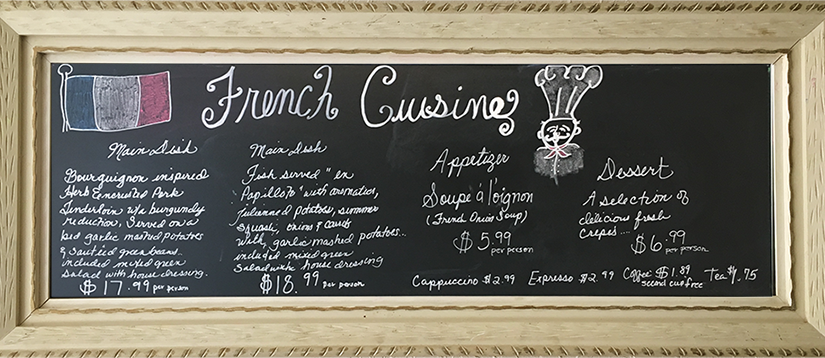 French Cuisine
Main Dish
Bourguignon inspired
Herb Encrusted Pork
Tenderloin w/a burgundy
reduction, Served on a
bed garlic mashed potatoes
& Sautéed green beans.
included mixed green
Salad with house dressing.
$17.99 per person
Main Dish
Fish served "en
Papillote" with aromatics,
Julienned potatoes, summer
squash, onions &
with, garlic mashed potatoes...
included mixed green
Salad with house dressing
$18.99 per person
Appetizer
Soupe á l'oignon
(French Onion Soup)
$5.99
per person
Dessert
A selection of
delicious fresh
crepes....
$6.99
per person
Cappuccino $2.99 Espresso $2.99 Coffee $1.89 Tea $1.75
second cup free